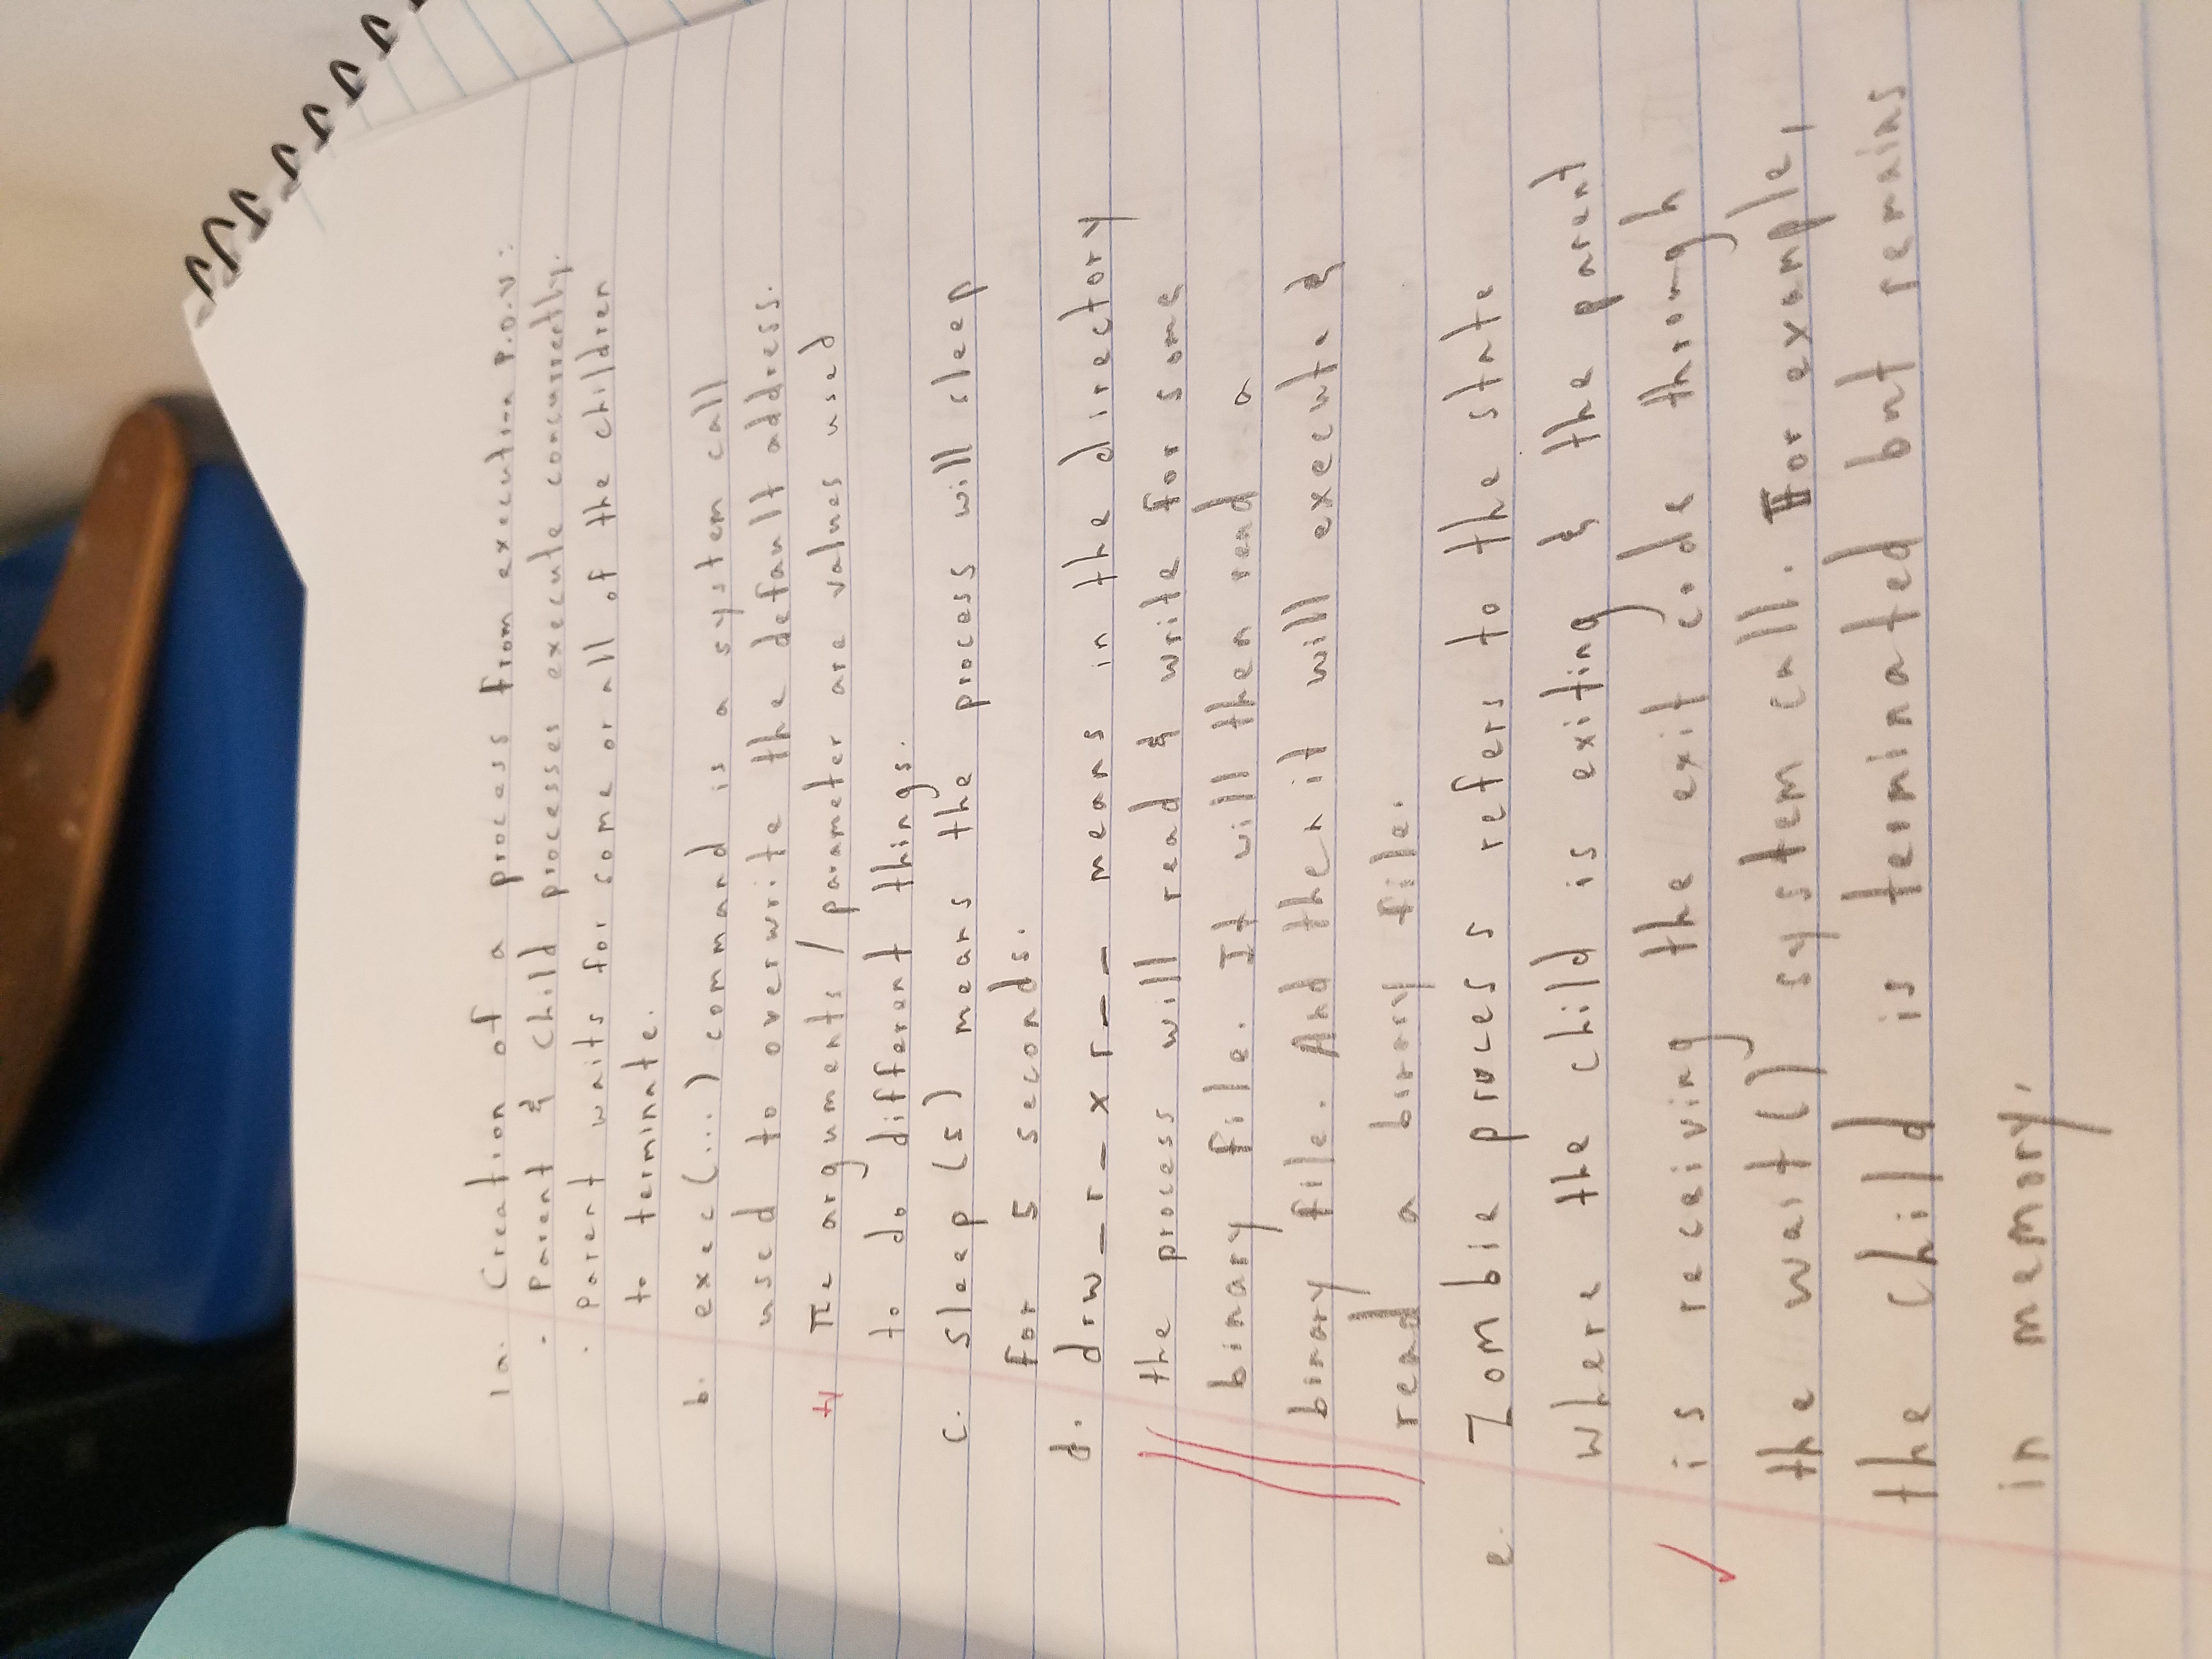 1a. Creation of a process from execution P.O.V:
· Parent & Child processes execute concurrently.
· Parent waits for some or all of the children
to terminate.
b. exec(...) command is a system call
used to overwrite the default address.
The arguments / parameter are values used
to do different things.
c. sleep (5) means the process will sleep
for 5 seconds.
d. drw_r_xr__ means in the directory
the process will read & write for some
binary file. It will then read a
binary file. And then it will execute &
read a binary file.
e. Zombie process refers to the state
where the child is exiting & the parent
is receiving the exit code through
the wait() system call. For example,
the child is terminated but remains
in memory.